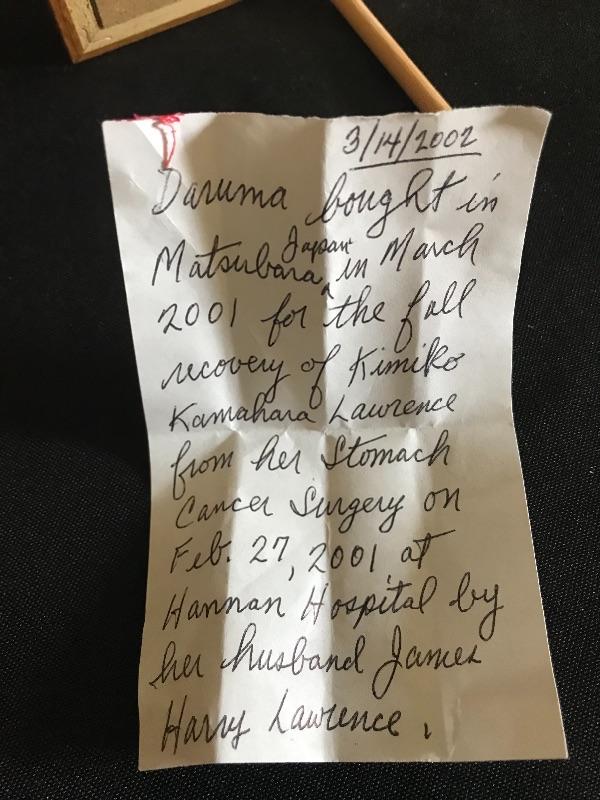 3/14/2002
Daruma bought in
Matsubara, Japan in March
2001 for the full
recovery of Kimiko
Kamahara Lawrence
from her Stomach
Cancer Surgery on
Feb. 27, 2001 at
Hannan Hospital by
her husband James
Harry Lawrence.